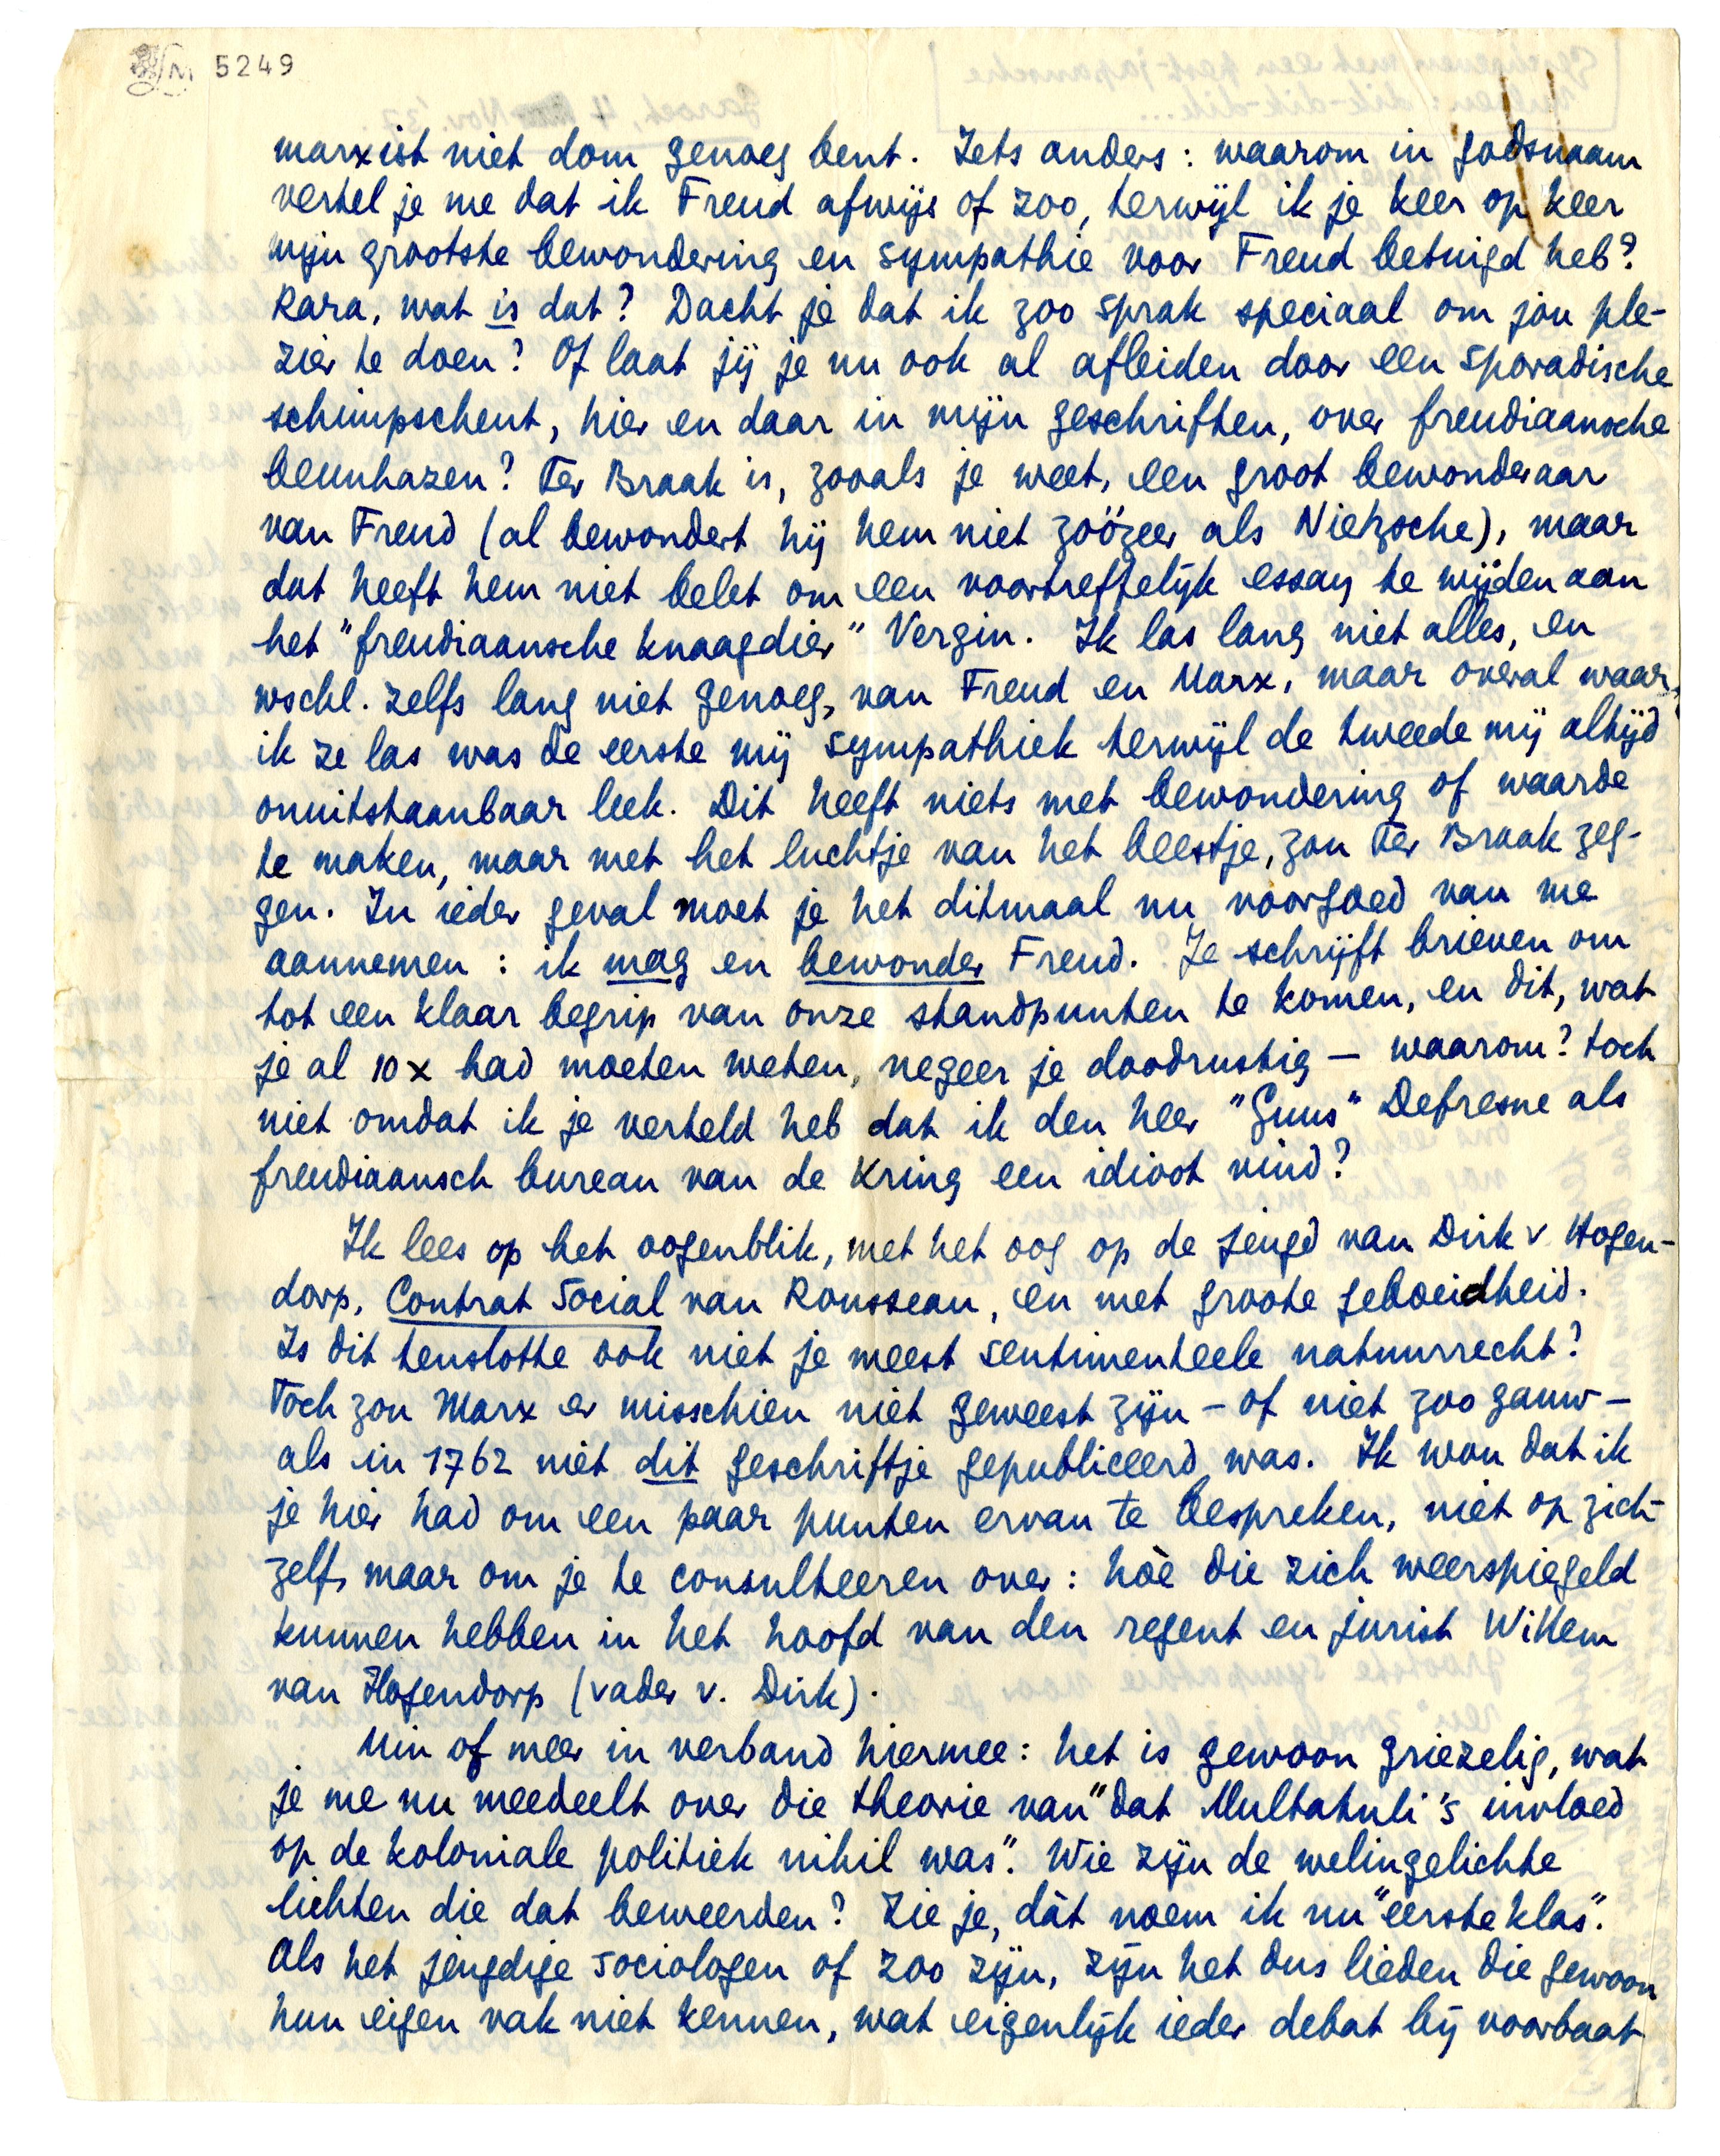 5249
marxist niet dom genoeg bent. Iets anders: waarom in godsnaam
vertel je me dat ik Freud afwijs of zoo, terwijl ik je keer op keer
mijn grootste bewondering en sympathie voor Freud betuigd heb?
Rara, wat is dat? Dacht je dat ik zoo sprak speciaal om jou ple-
zier te doen? Of laat jij je nu ook al afleiden door een sporadische
schimpscheut, hier en daar in mijn geschriften, over freudiaansche
beunhazen? Ter Braak is, zooals je weet, een groot bewonderaar
van Freud (al bewondert hij hem niet zoózeer als Nietzsche), maar
dat heeft hem niet belet om een voortreffelijk essay te wijden aan
het "freudiaansche knaagdier" Vergin. Ik las lang niet alles, en
wschl. zelfs lang niet genoeg, van Freud en Marx, maar overal waar
ik ze las was de eerste mij sympathiek terwijl de tweede mij altijd
onuitstaanbaar leek. Dit heeft niets met bewondering of waarde
te maken, maar met het luchtje van het beestje, zou Ter Braak zeg-
gen. In ieder geval moet je het ditmaal nu voorgoed van me
aannemen: ik mag en bewonder Freud. Je schrijft brieven om
tot een klaar begrip van onze standpunten te komen, en dit, wat
je al 10 x had moeten weten, negeer je doodrustig — waarom? toch
niet omdat ik je verteld heb dat ik den heer "Guus" Defresne als
freudiaansch bureau van de Kring een idioot vind?
Ik lees op het oogenblik, met het oog op de jeugd van Dirk v Hogen-
dorp, Contrat Social van Rousseau, en met groote geboeidheid.
Is dit tenslotte ook niet je meest sentimenteele natuurrecht?
Toch zou Marx er misschien niet geweest zijn – of niet zoo gauw –
als in 1762 niet dit geschriftje gepubliceerd was. Ik wou dat ik
je hier had om een paar punten ervan te bespreken, niet op zich-
zelf, maar om je te consulteeren over: hòè die zich weerspiegeld
kunnen hebben in het hoofd van den regent en jurist Willem
van Hogendorp (vader v. Dirk).
Min of meer in verband hiermee: het is gewoon griezelig, wat
je me nu meedeelt over die theorie van "dat Multatuli's invloed
op de koloniale politiek nihil was". Wie zijn de welingelichte
lichten die dat beweerden? Zie je, dàt noem ik nu "eerste klas".
Als het jeugdige sociologen of zoo zijn, zijn het dus lieden die gewoon
hun eigen vak niet kennen, wat eigenlijk ieder debat bij voorbaat